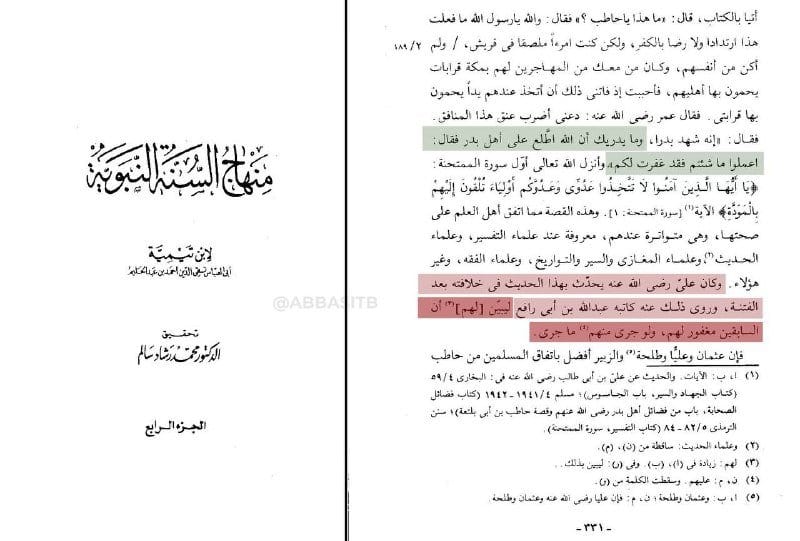 منهاج السنة النبوية
لابن تيمية
أبي العباس تقي الدين أحمد بن عبد الحليم
@ABBASITB
تحقيق
الدكتور محمد رشاد سالم
الجزء الرابع
أتيا بالكتاب، قال: «ما هذا ياحاطب؟» فقال: والله يارسول الله ما فعلت
هذا ارتدادا ولا رضا بالكفر، ولكن كنت امرءاً ملصقا فى قريش، / ولم ٢ /١٨٩
أكن من أنفسهم، وكان من معك من المهاجرين لهم بمكة قرابات
يحمون بها أهليهم، فأحببت إذ فاتنى ذلك أن أتخذ عندهم يداً يحمون
بها قرابتى. فقال عمر رضى الله عنه: دعنى أضرب عنق هذا المنافق.
فقال: «إنه شهد بدرا، وما يدريك أن الله اطّلع على أهل بدر فقال:
اعملوا ما شئتم فقد غفرت لكم» وأنزل الله تعالى أوّل سورة الممتحنة:
﴿يَا أَيُّهَا الَّذِينَ آمَنُوا لَا تَتَّخِذُوا عَدُوِّى وَعَدُوَّكُمْ أَوْلِيَاءَ تُلْقُونَ إِلَيْهِمْ
بِالْمَوَدَّةِ﴾ الآية(١) [سورة الممتحنة: ١]. وهذه القصة مما اتفق أهل العلم على
صحتها، وهى متواترة عندهم، معروفة عند علماء التفسير، وعلماء
الحديث(٢)، وعلماء المغازى والسير والتواريخ، وعلماء الفقه، وغير
هؤلاء. وكان علىّ رضى الله عنه يحدّث بهذا الحديث فى خلافته بعد
الفتنة، وروى ذلك عنه كاتبه عبدالله بن أبى رافع ليبيّن [لهم](٣) أن
السابقين مغفور لهم، ولو جرى منهم(٤) ما جرى.
فإن عثمان وعليًّا وطلحة(٥) والزبير أفضل باتفاق المسلمين من حاطب
(١) ا، ب: الآيات. والحديث عن علىّ بن أبى طالب رضى الله عنه فى: البخارى ٥٩/٤
(كتاب الجهاد والسير، باب الجاسوس)؛ مسلم ١٩٤١/٤ - ١٩٤٢ (كتاب فضائل
الصحابة، باب من فضائل أهل بدر رضى الله عنهم وقصة حاطب بن أبى بلتعة)؛ سنن
الترمذى ٨٢/٥ - ٨٤ (كتاب التفسير، سورة الممتحنة).
(٢) وعلماء الحديث: ساقطة من (ن)، (م).
(٣) لهم: زيادة فى (ا)، (ب). وفى (ر): ليبين بذلك..
(٤) ن، م: عليهم. وسقطت الكلمة من (ر).
(٥) ا، ب: وعثمان وطلحة؛ ن، م: فإن عليا رضى الله عنه وعثمان وطلحة.
- ٣٣١ -